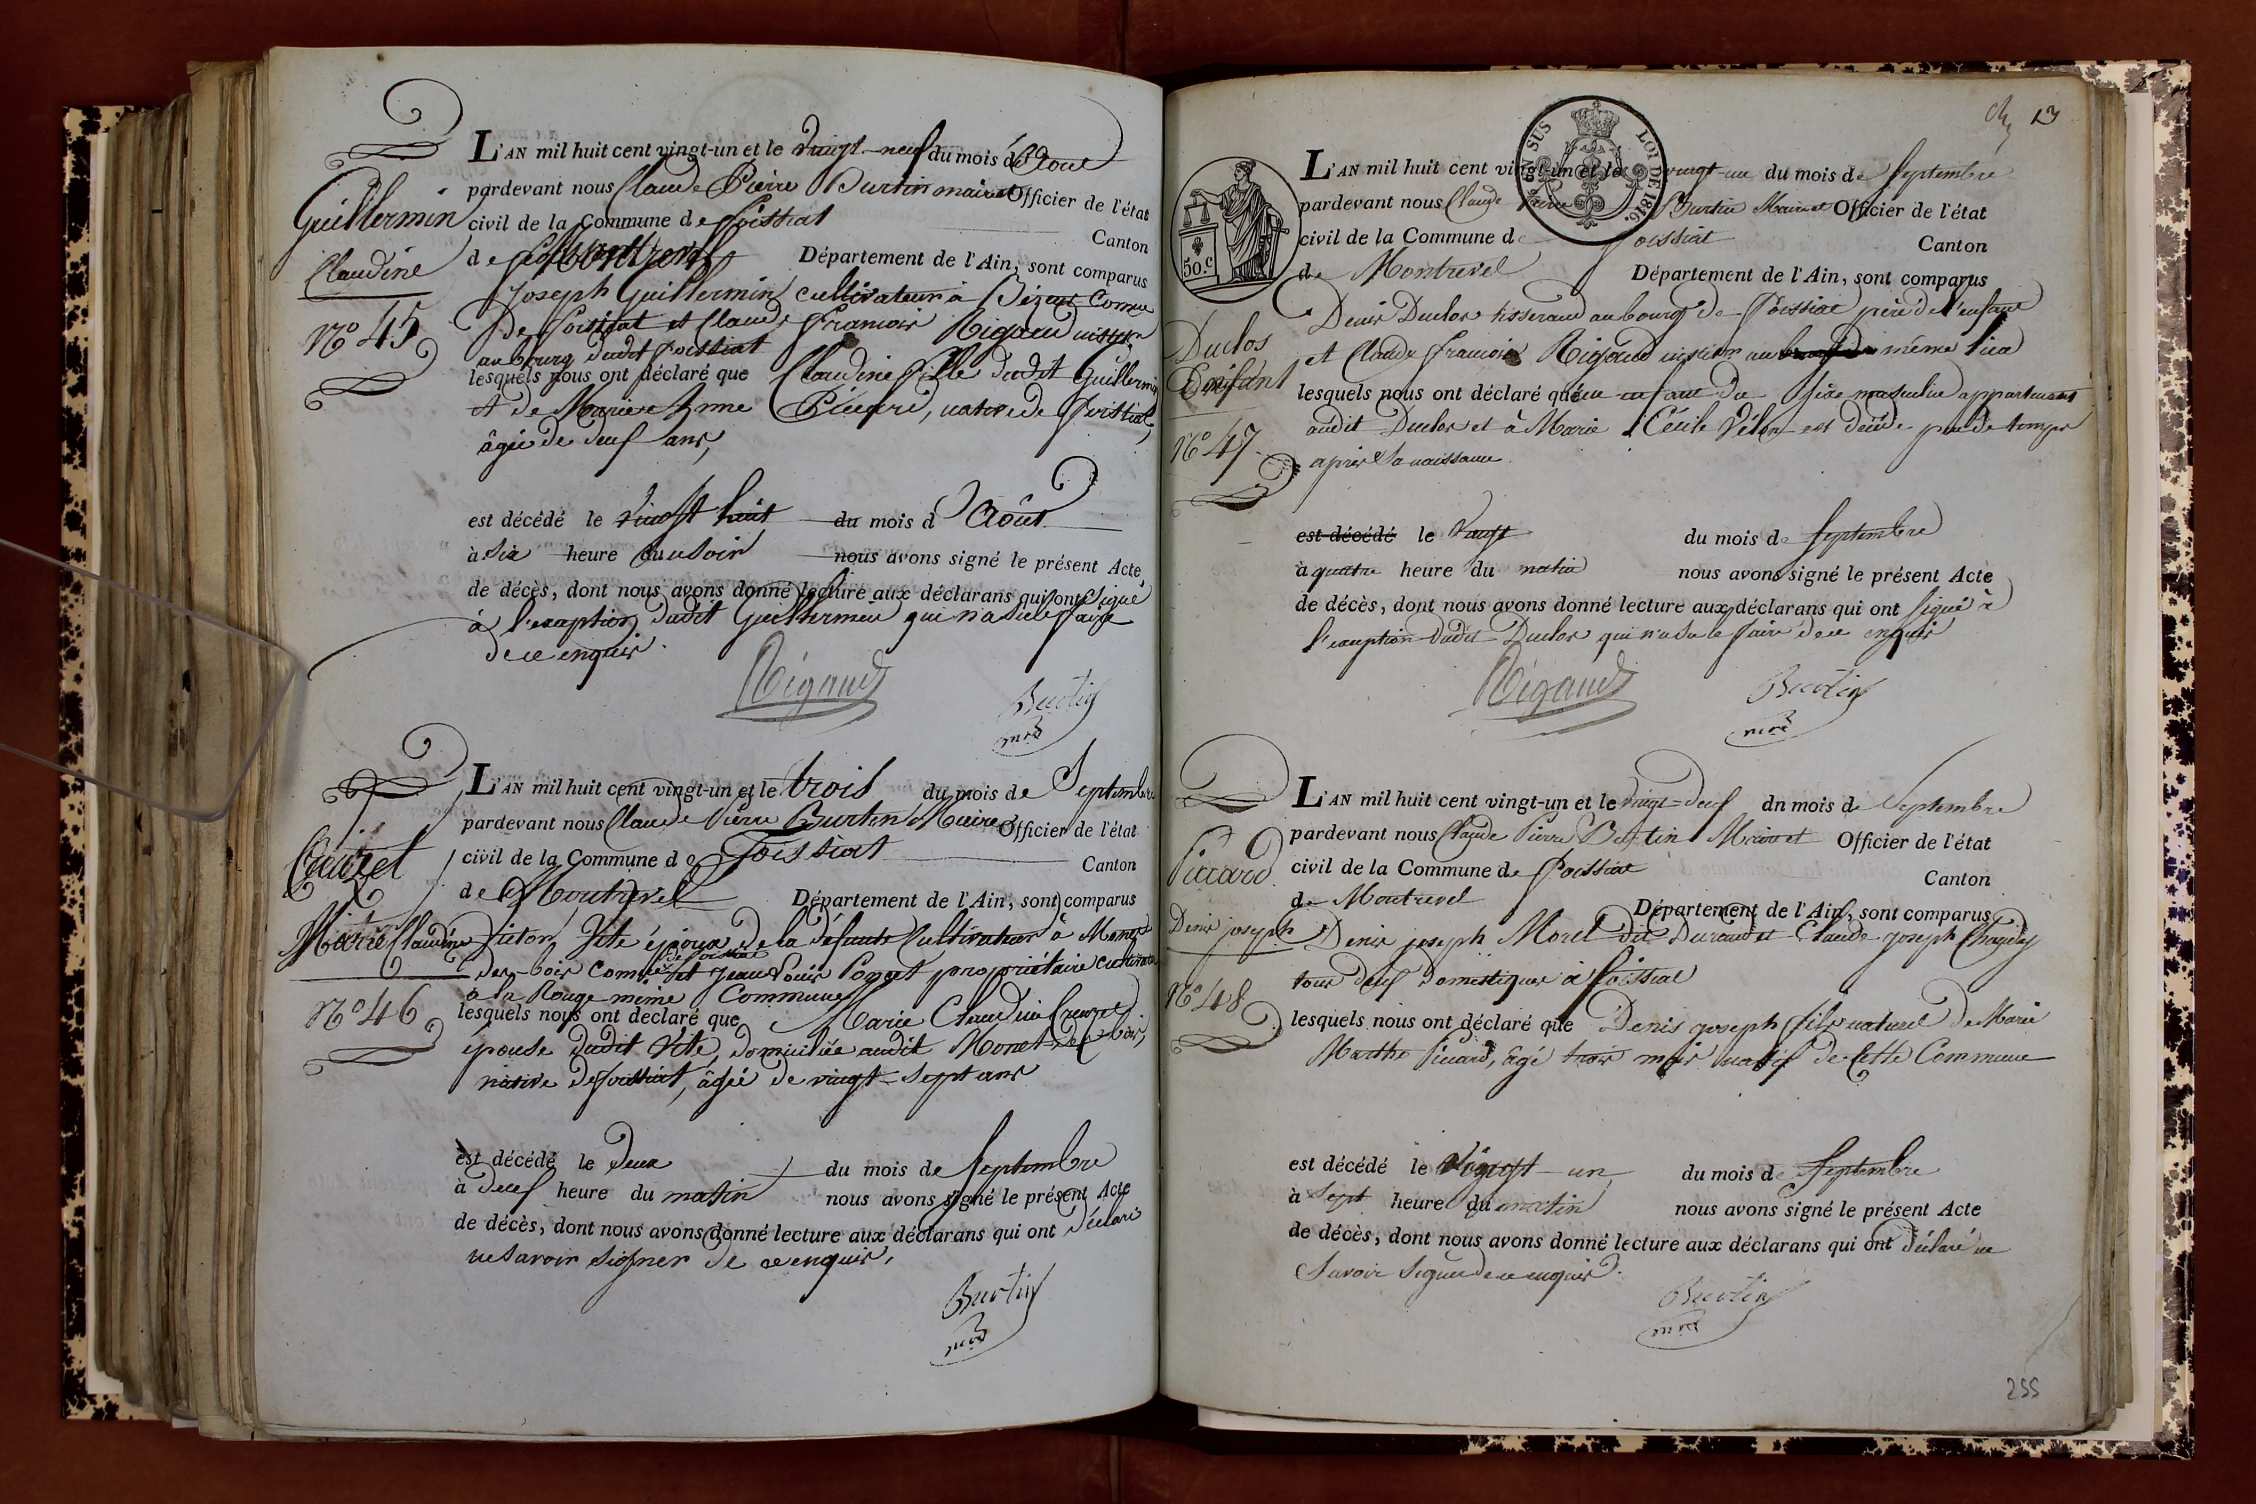 L'AN mil huit cent vingt-un et le vingt-neuf du mois d'Aout
pardevant nous Claude Pierre Burtin maire et Officier de l'état
Guillermin
civil de la Commune de Foissiat
Canton
Claudine
de Montrevel Département de l'Ain, sont comparus
Joseph Guillermin cultivateur à Bézent Comne
No 45
de Foissiat et Claude François Rigaud
au bourg dudit Foissiat
lesquels nous ont déclaré que Claudine fille dudit Guillermin
et de Marie Anne native de Foissiat,
âgée de deuf ans,
est décédé le vingt huit du mois d'Août
à six heure du soir nous avons signé le présent Acte
de décès, dont nous avons donné lecture aux déclarans qui ont signé
à l'exception dudit Guillermin qui n'a su le faire
de ce enquis.
Rigaud
Burtin
mre
L'AN mil huit cent vingt-un et le trois du mois de Septembre
pardevant nous Claude Pierre Burtin Maire Officier de l'état
Creuzet
civil de la Commune de Foissiat
Canton
de Montrevel Département de l'Ain, sont comparus
Marie Claudine
Vité époux de la défunte Cultivateur à Monet
des bois Comne de Foissiat et Jean Louis Poncet propriétaire cultivateur
à la Rouge même Commune
No 46
lesquels nous ont déclaré que Marie Claudine Creuzet
épouse dudit Vité, domiciliée audit Monet des bois,
native de Foissiat, âgée de vingt-sept ans
est décédé le deux du mois de Septembre
à deuf heure du matin nous avons signé le présent Acte
de décès, dont nous avons donné lecture aux déclarans qui ont déclaré
ne savoir signer de ce enquis,
Burtin
mre
13
EN SUS
LOI DE 1816.
50.c
L'AN mil huit cent vingt-un et le vingt-un du mois de Septembre
pardevant nous Claude Pierre Burtin Maire et Officier de l'état
civil de la Commune de Foissiat
Canton
de Montrevel Département de l'Ain, sont comparus
Denis Duclos tisserand au bourg de Foissiat père de l'enfant
Duclos
et Claude François Rigaud au même lieu
Enfant
lesquels nous ont déclaré qu'un enfant du sexe masculin appartenant
audit Duclos et à Marie Cécile Vélon est décédé peu de temps
No 47
après sa naissance
est décédé le vingt du mois de Septembre
à quatre heure du matin nous avons signé le présent Acte
de décès, dont nous avons donné lecture aux déclarans qui ont signé à
l'exception dudit Duclos qui n'a su le faire de ce enquis
Rigaud
Burtin
mre
L'AN mil huit cent vingt-un et le vingt-deuf dn mois de Septembre
pardevant nous Claude Pierre Burtin Maire et Officier de l'état
Piccard
civil de la Commune de Foissiat
Canton
de Montrevel
Département de l'Ain, sont comparus
Denis joseph
Denis joseph Morel dit Durand et Claude joseph
tous deuf domestiques à Foissiat
No 48
lesquels nous ont déclaré que Denis joseph fils naturel de Marie
Marthe Picard, âgé trois mois natif de Cette Commune
est décédé le vingt-un du mois de Septembre
à sept heure du matin nous avons signé le présent Acte
de décès, dont nous avons donné lecture aux déclarans qui ont déclaré ne
savoir signer de ce enquis.
Burtin
mre
255